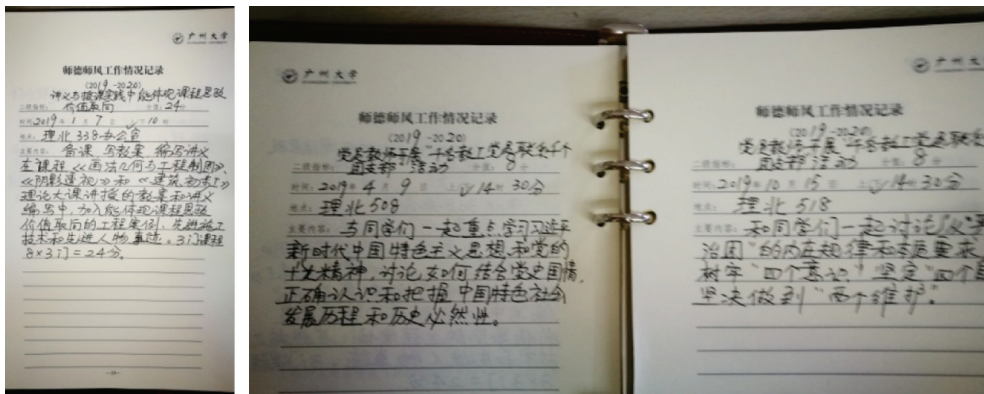 广州大学
师德师风工作情况记录
(2019-2020)
讲义与授课实践中能体现课程思政
二级指标: 价值取向 分值: 24分
时间: 2019年1月7日 上午10时
地点: 理北338办公室
主要内容: 备课、写教案、编写讲义
在课程《画法几何与工程制图》、
《阴影透视》和《建筑初步》
理论大课讲授的教案和讲义
编写中,加入能体现课程思政
价值取向的工程案例、先进施工
技术和先进人物事迹。3门课程
8×3门=24分。
广州大学
师德师风工作情况记录
(2019-2020)
党员教师开展“千名教工党员联系千个
二级指标: 团支部”活动 分值: 8分
时间: 2019年4月9日 上 14时30分
地点: 理北508
主要内容: 与同学们一起重点学习习近平
新时代中国特色主义思想和党的
十九大精神,讨论如何结合党史国情,
正确认识和把握中国特色社会
发展历程和历史必然性。
广州大学
师德师风工作情况记录
(2019-2020)
党员教师开展“千名教工党员联系千
二级指标: 团支部”活动 分值: 8分
时间: 2019年10月15日 上 14时30分
地点: 理北518
主要内容: 和同学们一起讨论“从
治团”的内在规律和本质要求
树牢“四个意识”坚定“四个自
坚决做到“两个维护”。